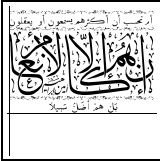 أم تحسب أن أكثرهم يسمعون أو يعقلون
إن هم إلا كالأنعام
بل هم أضل سبيلا